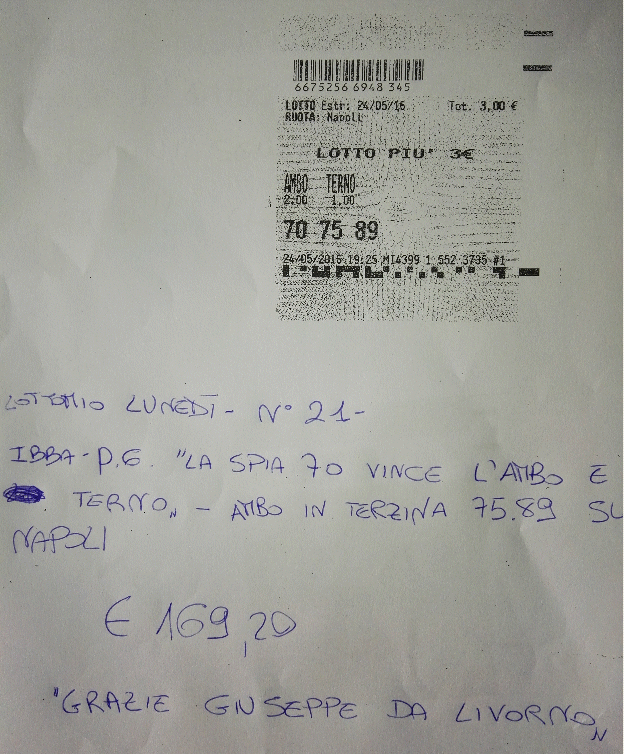 6675256 6948 345
LOTTO Estr: 24/05/16 Tot. 3,00 €
RUOTA: Napoli
LOTTO PIU' 3€
AMBO TERNO
2.00 1.00
70 75 89
24/05/2016 19:25 MI4399 1 552 3735 #1
LOTTOMIO LUNEDÌ - N° 21-
IBBA - P.6. "LA SPIA 70 VINCE L'AMBO E
TERNO" - AMBO IN TERZINA 75.89 SU
NAPOLI
€ 169,20
"GRAZIE GIUSEPPE DA LIVORNO"